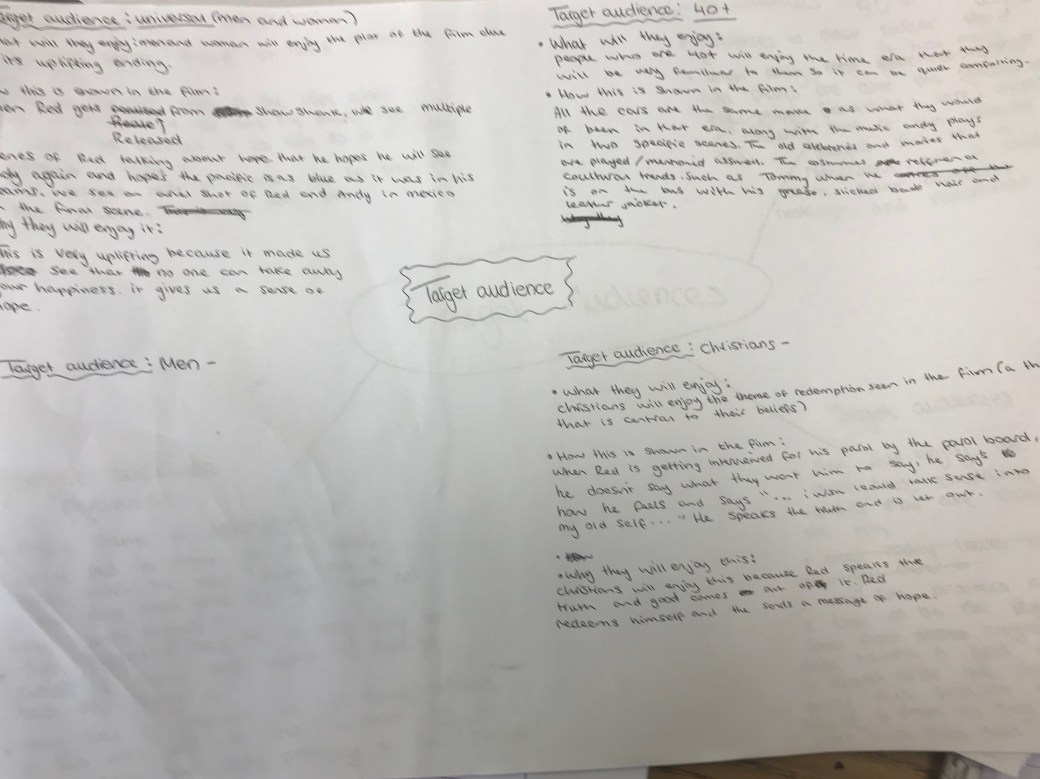 Target audience: universal (men and woman)
will they enjoy: men and woman will enjoy the plot of the film due
its uplifting ending.
this is shown in the film:
Red gets from Show Shank, we see multiple
Released
of Red talking about hope that he hopes he will see
again and hopes the pacific is as blue as it was in his
we see an ariel shot of Red and Andy in mexico
the final scene.
they will enjoy it:
This is very uplifting because it made us
see that no one can take away
your happiness. it gives us a sense of
hope.
Target audience: Men -
Target audience: 40+
• What will they enjoy:
people who are 40+ will enjoy the time era that they
will be very familiuar to them so it can be quiet comforting.
• How this is shown in the film:
All the cars are the same make as what they would
of been in that era, along with the music andy plays
in two specific scenes. The old and that
are played/. The
trends. Such as Tommy when he
is on the bus with his grease, slicked back hair and
leather jacket.
Target audience
Target audience: Christians -
• What they will enjoy:
christians will enjoy the theme of redemption seen in the film (a
that is central to their beliefs)
• How this is shown in the film:
when Red is getting interveiwed for his parol by the parol board,
he doesn't say what they want him to say, he says
how he feels and says "... i could talk sense into
my old self..." He speaks the truth and is let out.
• Why they will enjoy this:
christians will enjoy this because Red speaks the
truth and good comes out of it. Red
redeems himself and the sends a message of hope.